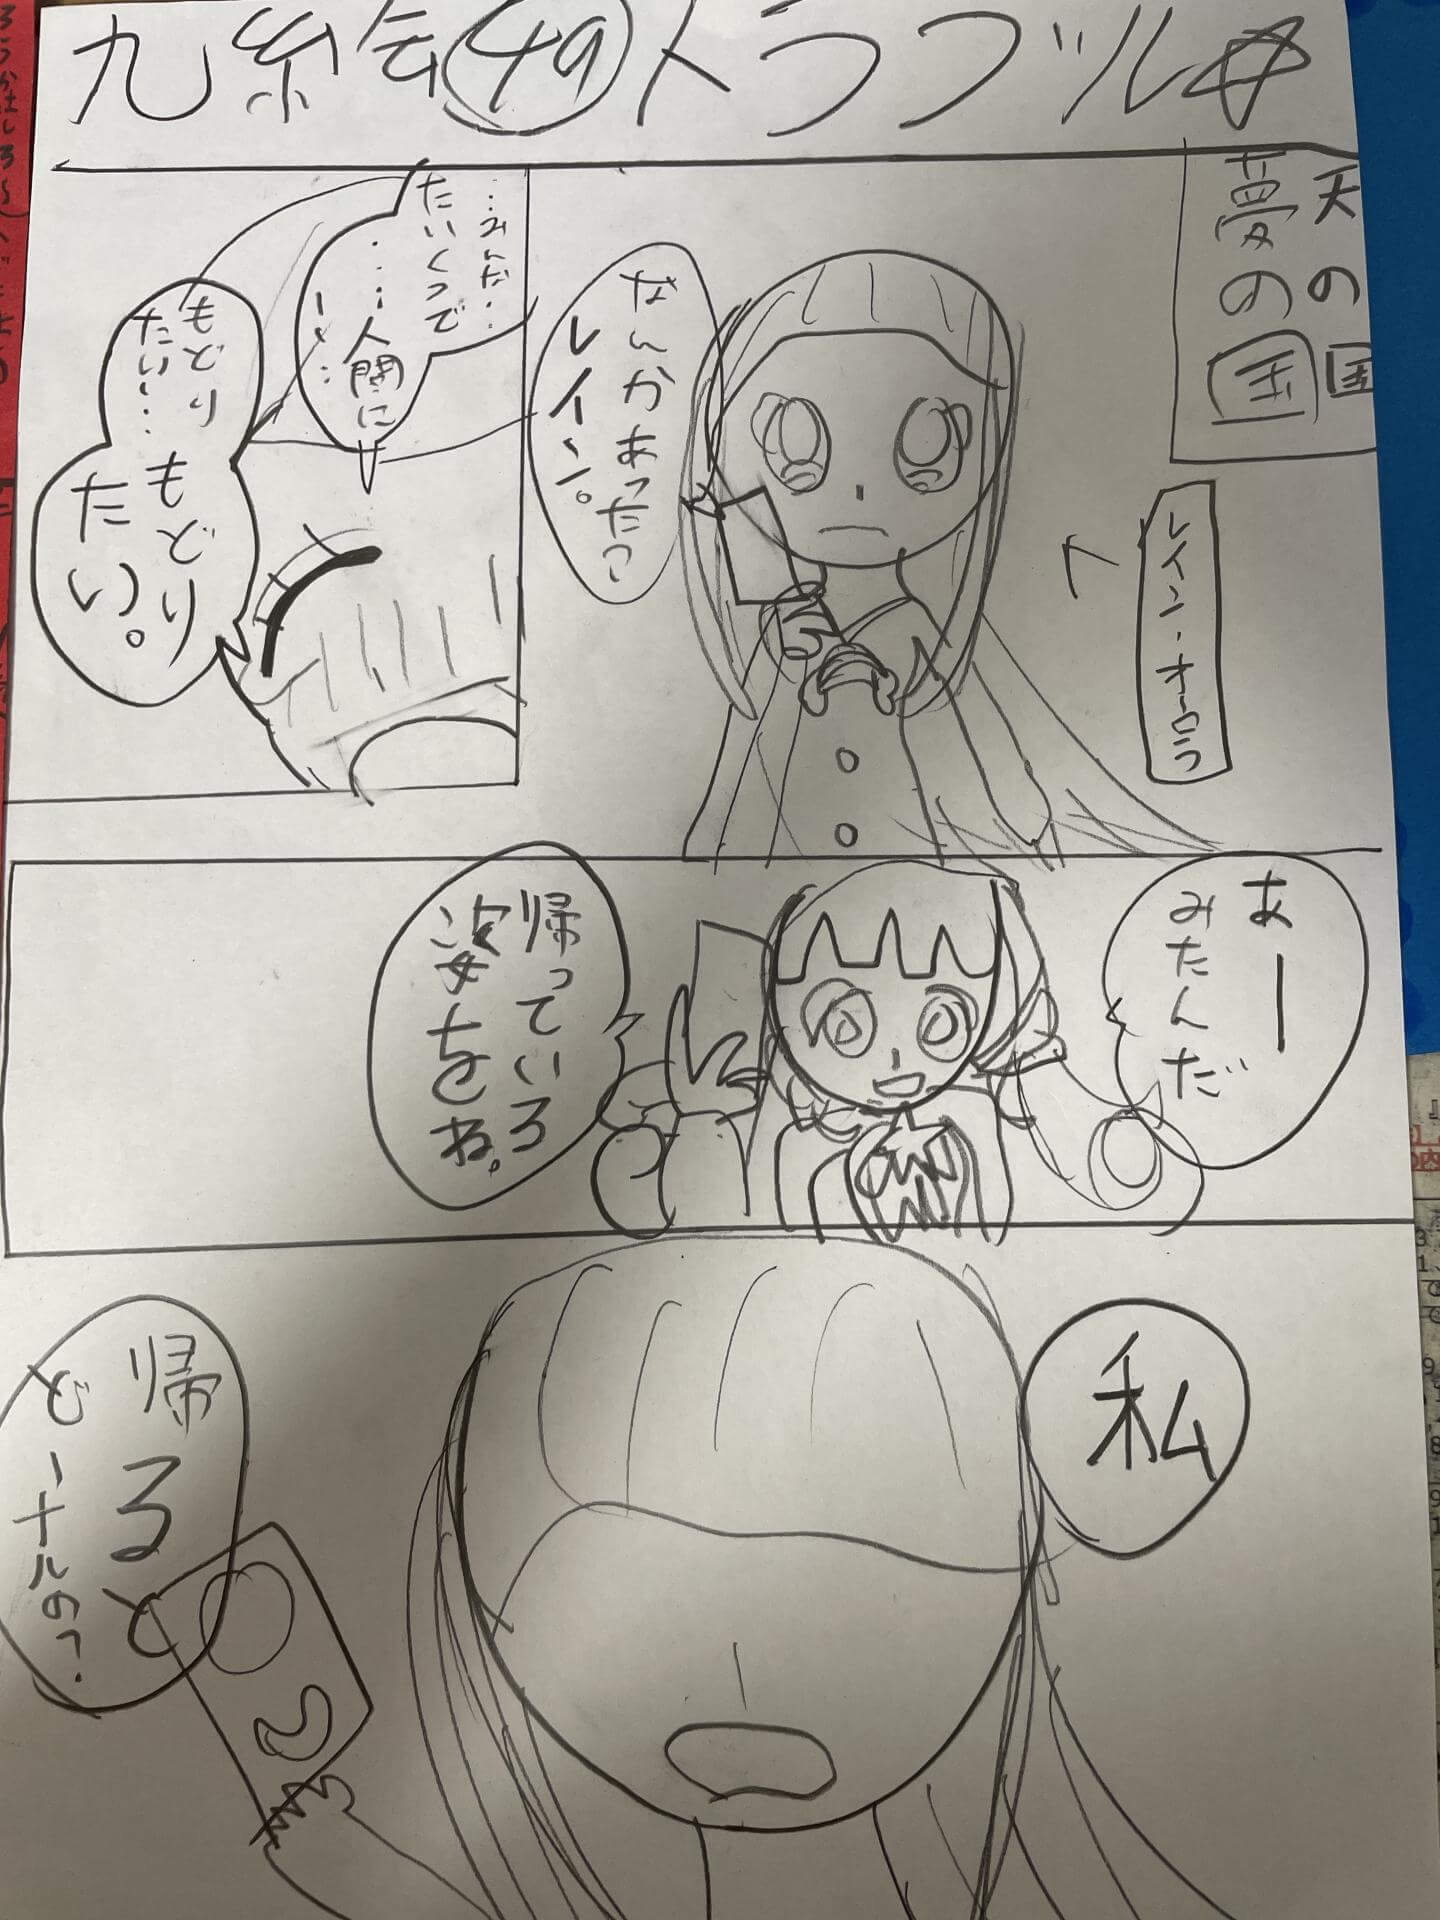 九糸会㊾トラブル☆
天の国
夢の国
レイン・オーロラ
なんかあった?
レイーン。
…みんな…
たいくつで
……人間に
もどり
たい〜…
もどり
たい。
あー
みたんだ
帰っている
姿をね。
私
帰ると
どーナルの?